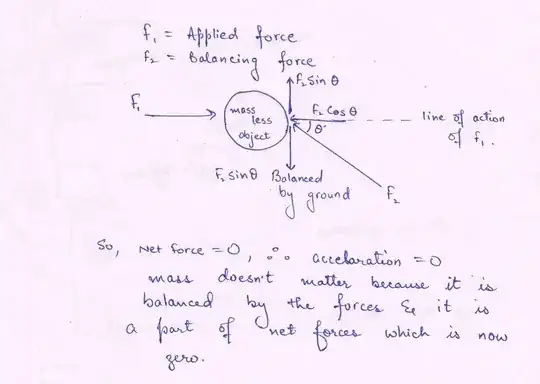 f₁ = Applied force
f₂ = Balancing force
F₂ Sin θ
F₁
mass less object
F₂ Cos θ
θ
line of action of f₁.
F₂ sin θ Balanced by ground
F₂
So, Net force = 0, ∴ accelaration = 0
mass doesn't matter because it is
balanced by the forces & it is
a part of net forces which is now
zero.